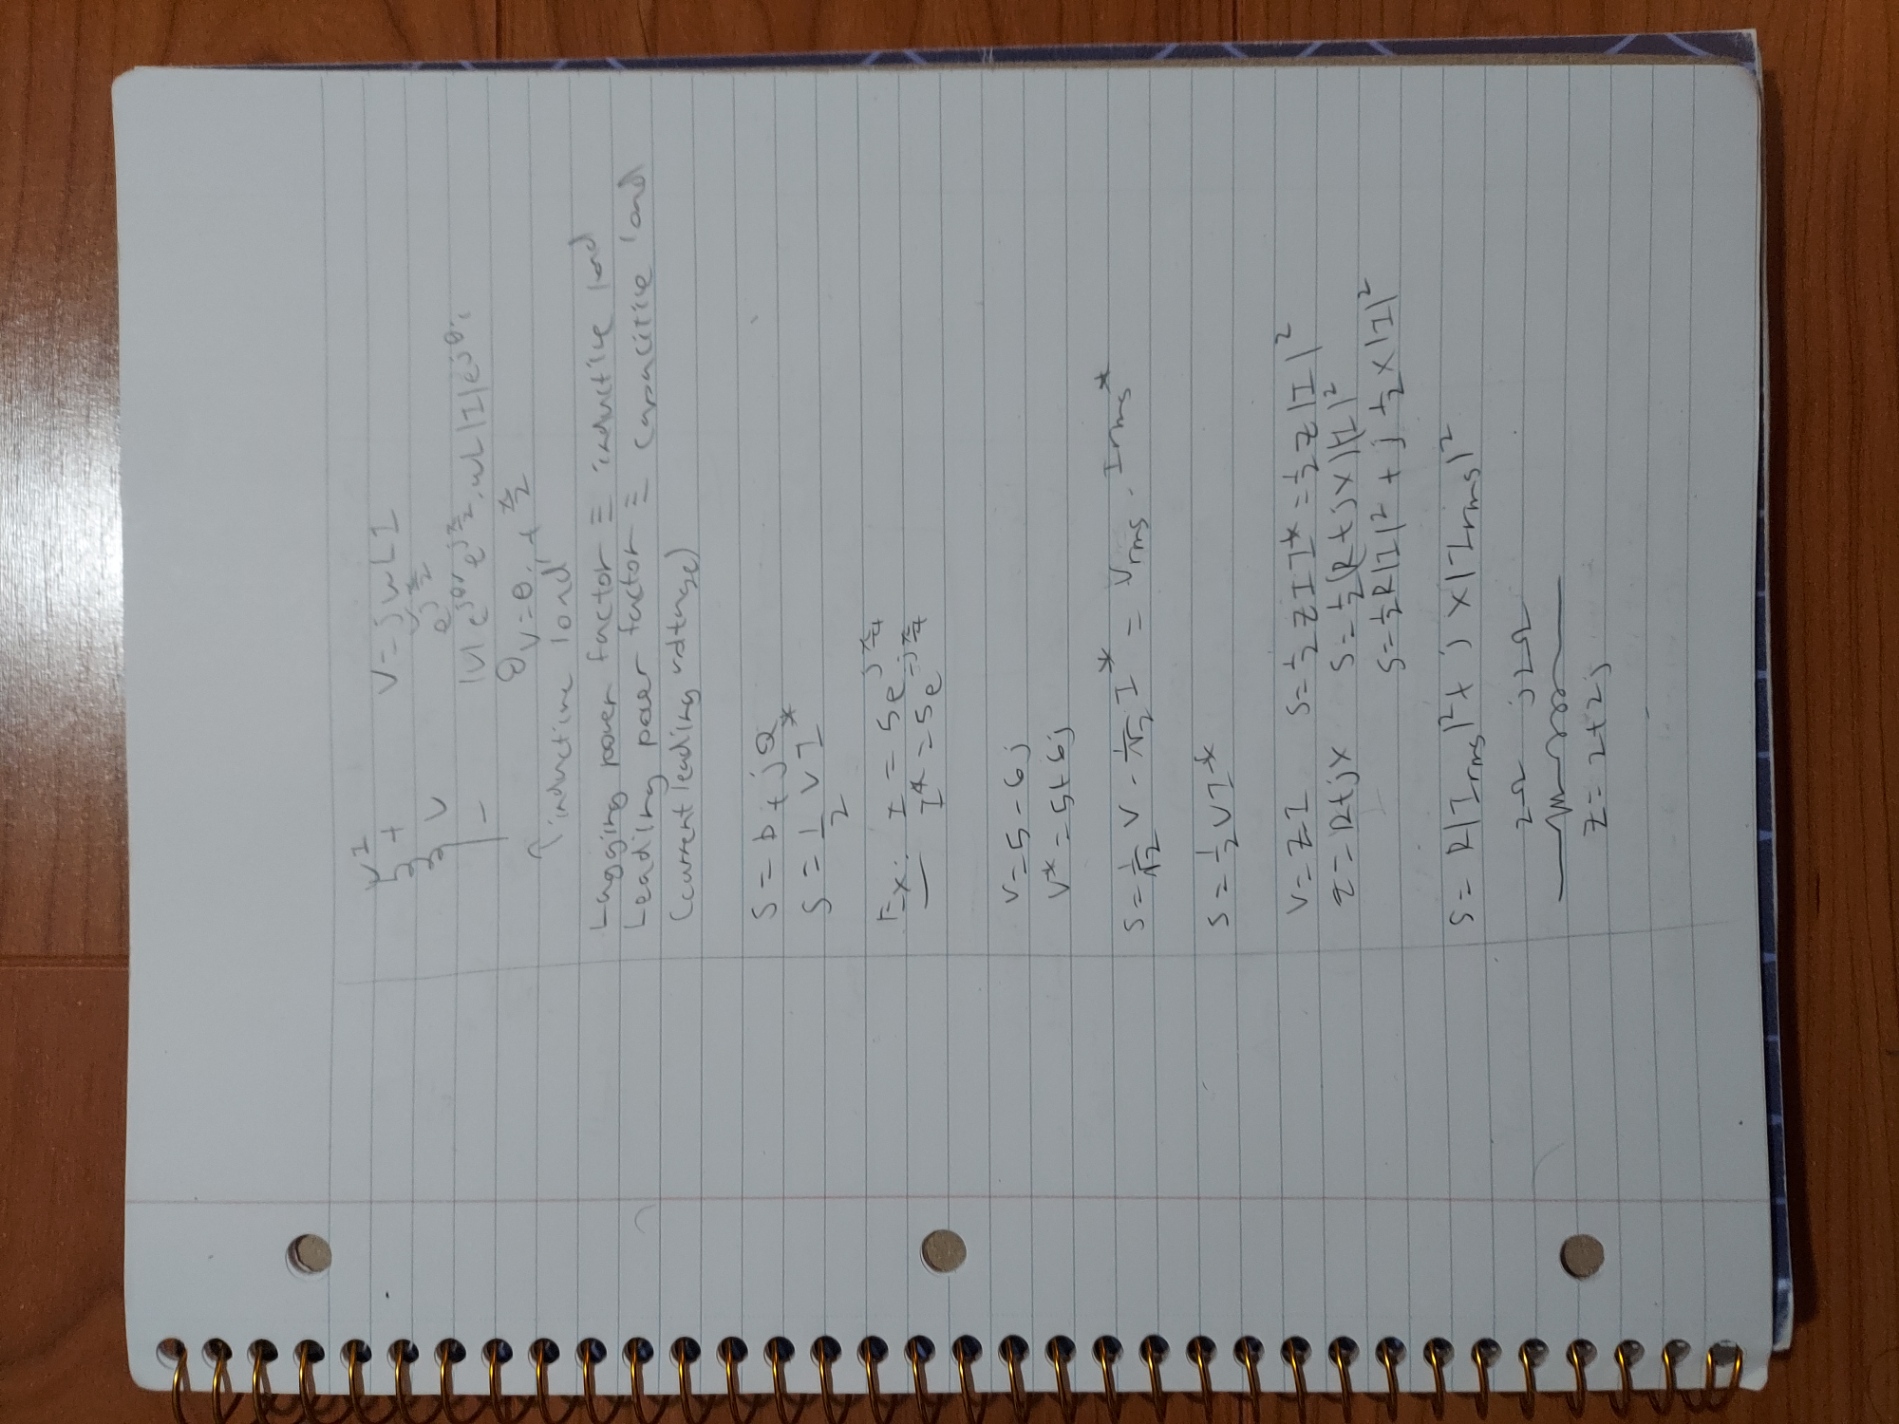 I
+ V = jwLI
V e^jπ/2
|V| e^jθv e^jπ/2 . wL |I| e^jθi
- θv = θi + π/2
↑ inductive load
Lagging power factor ≡ inductive load
Leading power factor ≡ capacitive load
(current leading voltage)
S = P + jQ
S = 1/2 VI*
Ex: I = 5e^jπ/4
I* = 5e^-jπ/4
V = 5 - 6j
V* = 5 + 6j
S = 1/√2 V · 1/√2 I* = Vrms · Irms*
S = 1/2 VI*
V = ZI S = 1/2 Z I I* = 1/2 Z |I|²
Z = R + jX S = 1/2 (R + jX) |I|²
S = 1/2 R|I|² + j 1/2 X|I|²
S = R|Irms|² + j X|Irms|²
2Ω j2Ω
Z = 2 + 2j